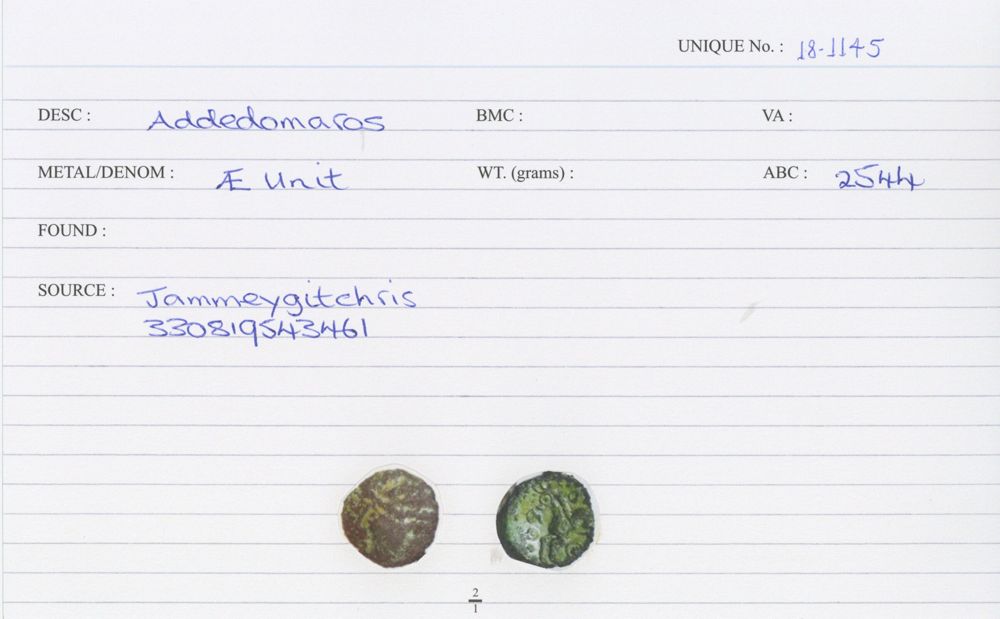 UNIQUE No. : 18-1145
DESC : Addedomaros BMC : VA :
METAL/DENOM : Æ Unit WT. (grams) : ABC : 2544
FOUND :
SOURCE : Jammeygitchris
330819543461
2
1